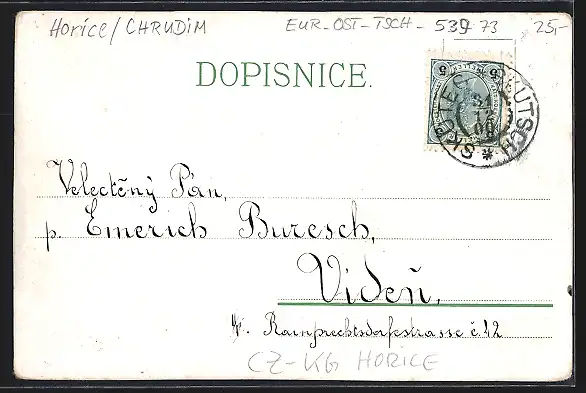 Horice/CHRUDIM EUR-OST-TSCH- 539 73 25,-
DOPISNICE.
SKUTEČ SKUTSCH
31
12
00
5 5
Velectěný Pán,
p. Emerich Buresch,
Vídeň,
IV. Rainprechtsdorfestrasse č. 12
CZ-KG HORICE